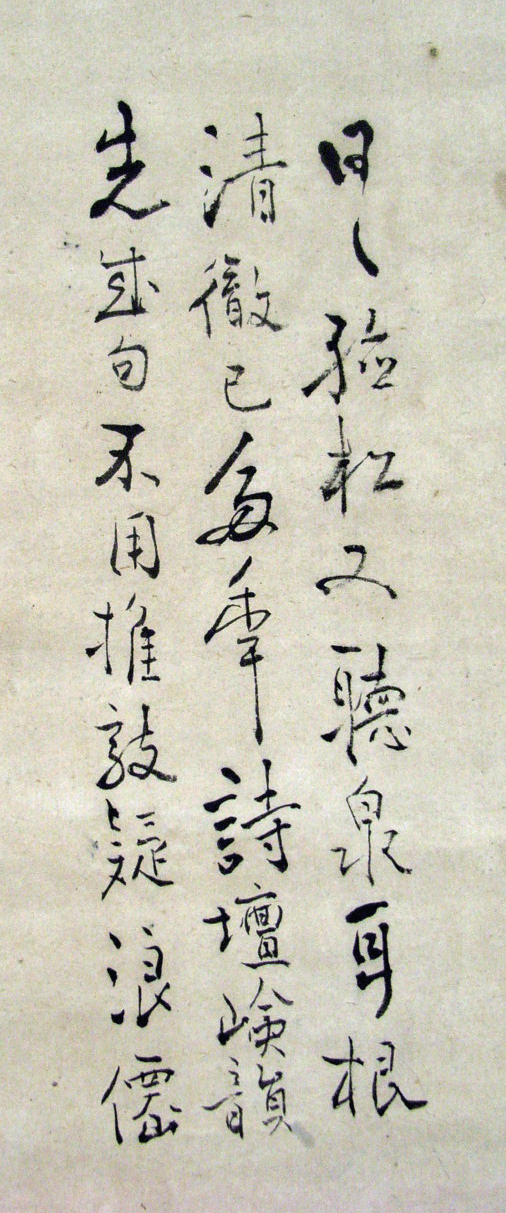 日々松又聽泉耳根
清徹已多秊詩壇嶮韻
先成句不用推敲疑浪僊